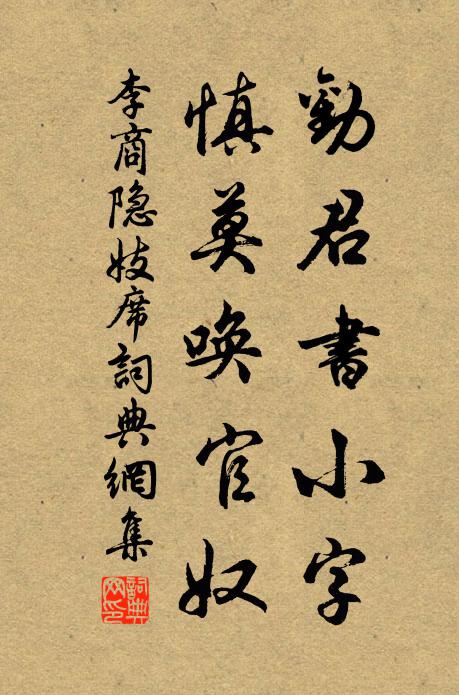 勸君書小字
慎莫喚官奴
李商隐妓席詞典網集
詞典网印